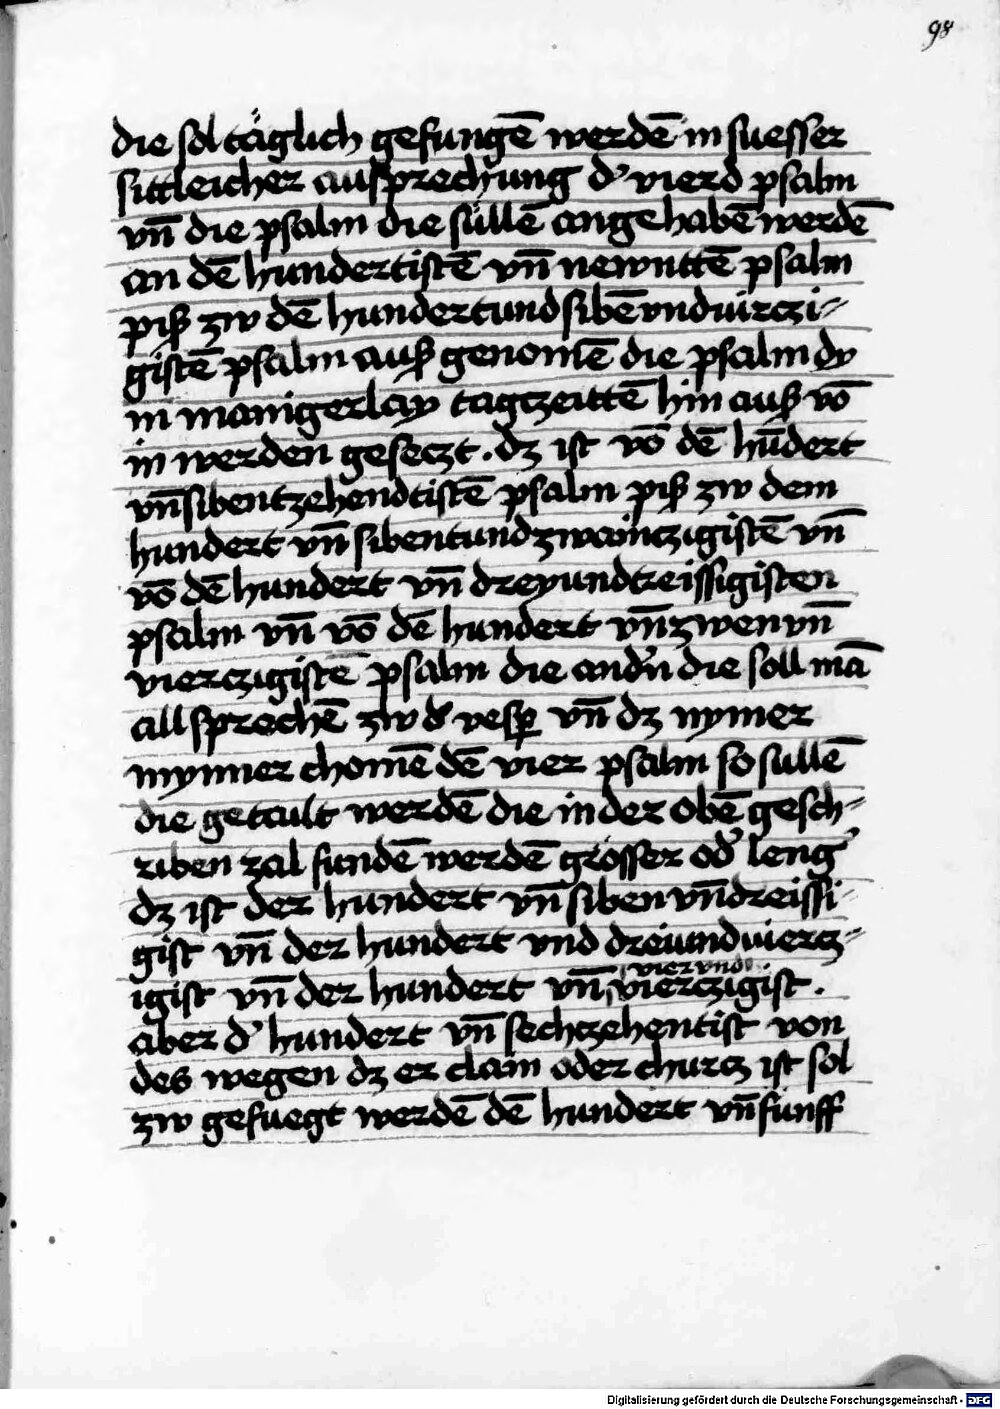 98
die sol täglich gesungē werdē in suesser
sittleicher ausprechung d' vierd psalm
vn̄ die psalm die süllē angehabē werdē
an dē hundertistē vn̄ newnttē psalm
piß zw dē hundertund sibē vnduirczi-
gistē psalm auß genomē die psalm dy
in manigerlay tagczeittē hin auß vō
in werden geseczt. dz ist vō dē hūdert
vn̄ sibentzehendtistē psalm piß zw dem
hundert vn̄ sibentundzwainczigistē vn̄
vō dē hundert vn̄ dreyundtreissigisten
psalm vn̄ vō dē hundert vn̄ zwen vn̄
vierczigistē psalm die and'n die soll mā
all sprechē zw d' vesp̄ vn̄ dz nymer
mynner chomē dē vier psalm so sullē
die getailt werdē die in der obē gesch-
riben zal fundē werdē grösser od' leng'
dz ist der hundert vn̄ siben vn̄dreissi-
gist vn̄ der hundert vnd dreiundviercz-
igist vn̄ der hundert vn̄ vier vnd vierczigist.
aber d' hundert vn̄ sechczehentist von
des wegen dz er clain oder churcz ist sol
zw gefuegt werdē dē hundert vn̄ funff
Digitalisierung gefördert durch die Deutsche Forschungsgemeinschaft - DFG